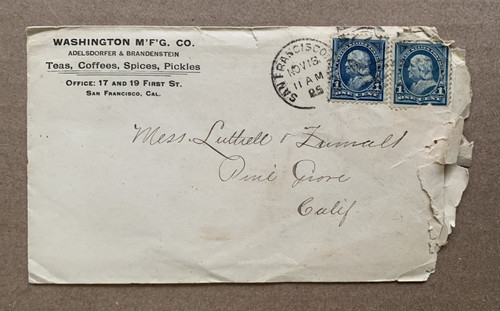 WASHINGTON M'F'G. CO.
ADELSDORFER & BRANDENSTEIN
Teas, Coffees, Spices, Pickles
OFFICE: 17 AND 19 FIRST ST.
SAN FRANCISCO, CAL.
SAN FRANCISCO
NOV 18
11 AM
95
1 ONE CENT 1
1 ONE CENT 1
Mess. Luttrell &
Pine Grove
Calif